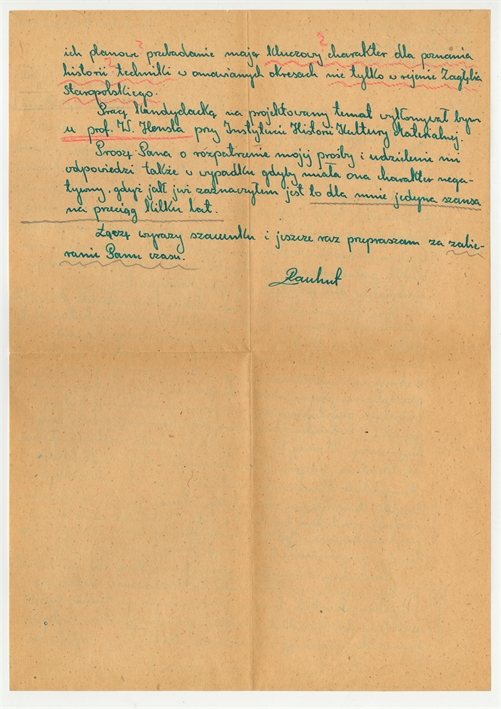 ich planowe przebadanie mają kluczowy charakter dla poznania
historii techniki w omawianych okresach nie tylko w rejonie Zagłębia
Staropolskiego.
Pracę kandydacką na projektowany temat wykonywał bym
u prof. W. Hensla przy Instytucie Historii Kultury Materialnej.
Proszę Pana o rozpatrzenie mojej prośby i udzielenie mi
odpowiedzi także w wypadku gdyby miała ona charakter nega-
tywny, gdyż jak już zaznaczyłem jest to dla mnie jedyna szansa
na przeciąg kilku lat.
Łączę wyrazy szacunku i jeszcze raz przepraszam za zabie-
ranie Panu czasu.